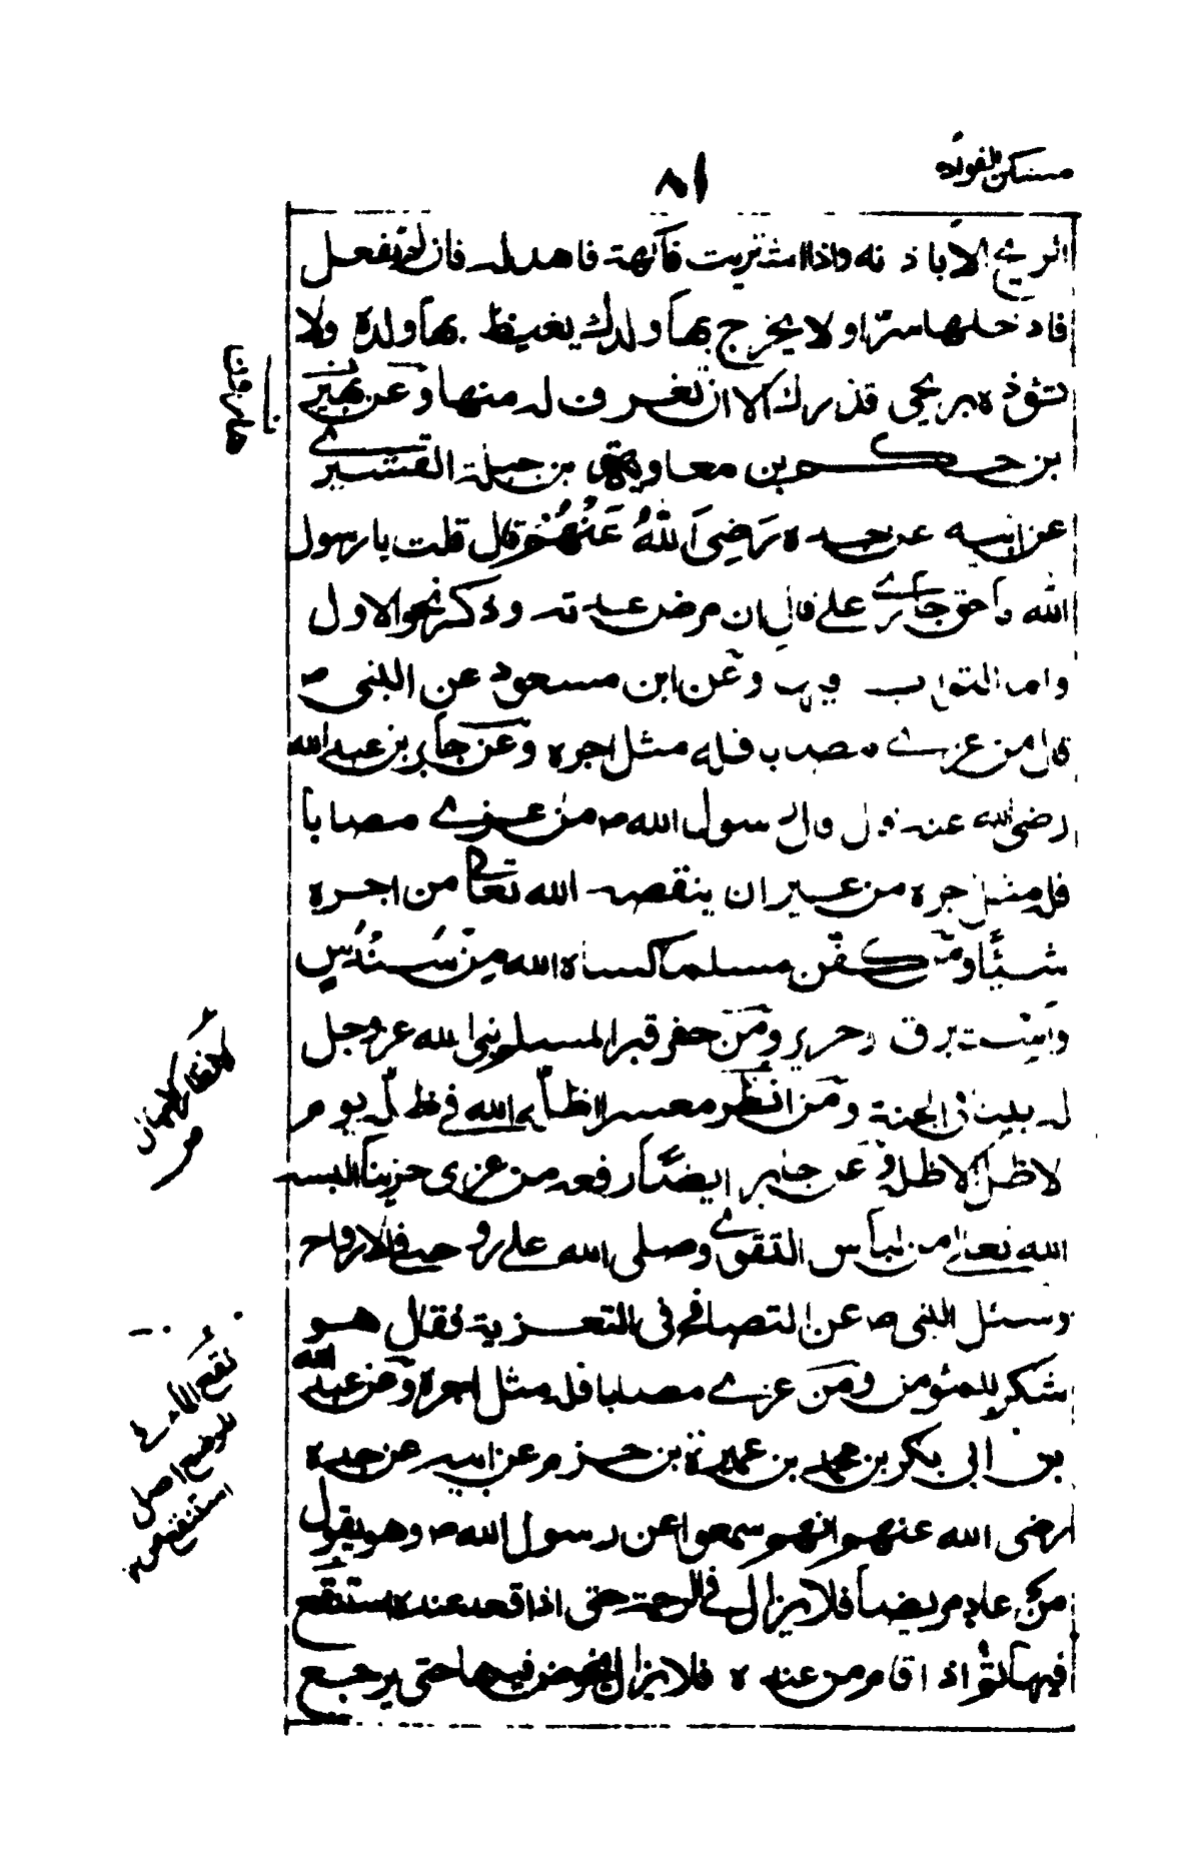 مسكن الفؤاد
٨١
الريح الا باذنه واذا اشتريت فاكهة فاهد له فان لم تفعل
فادخلها سرّا ولا يخرج بها ولدك يغيظ بها ولده ولا
تؤذه بريح قدرك الا ان تغرف له منها وعن بهز
بن حكيم بن معاوية بن جيدة القشيري
عن ابيه عن جده رَضِيَ اللهُ عَنْهُمْ قال قلت يا رسول
الله ما حق جاري علي قال ان مرض عدته وذكر نحو الاول
واما الثواب فيها وعن ابن مسعود عن النبي ص
قال من عزى مصابا فله مثل اجره وعن جابر بن عبد الله
رضي الله عنه قال قال رسول الله ص من عزى مصابا
فله مثل اجره من غير ان ينقصه الله تعالى من اجره
شيئًا ومن كفّن مسلما كساه الله مِنْ سُنْدُسٍ
واستبرق وحرير ومَن حفر قبرا لمسلم بنى الله عز وجل
له بيتا في الجنة ومَن انظَر معسرا اظلّه الله في ظلّه يوم
لا ظل الا ظله وعن جابر ايضًا رفعه من عزى حزينا البسه
الله تعالى من لباس التقوى وصلى الله على روحه في الارواح
وسئل النبي ص عن التصافح في التعزية فقال هو
شكر للمؤمن ومَن عزى مصابا فله مثل اجره وعن عبد الله
بن ابي بكر بن محمد بن عميرة بن حزم عن ابيه عن جده
رضي الله عنهم انهم سمعوا عن رسول الله ص وهو يقول
مَن عاد مريضاً فلا يزال في الرحمة حتى اذا قعد عنده استنقع
فيها ثم اذا قام من عنده فلا يزال يخوض فيها حتى يرجع